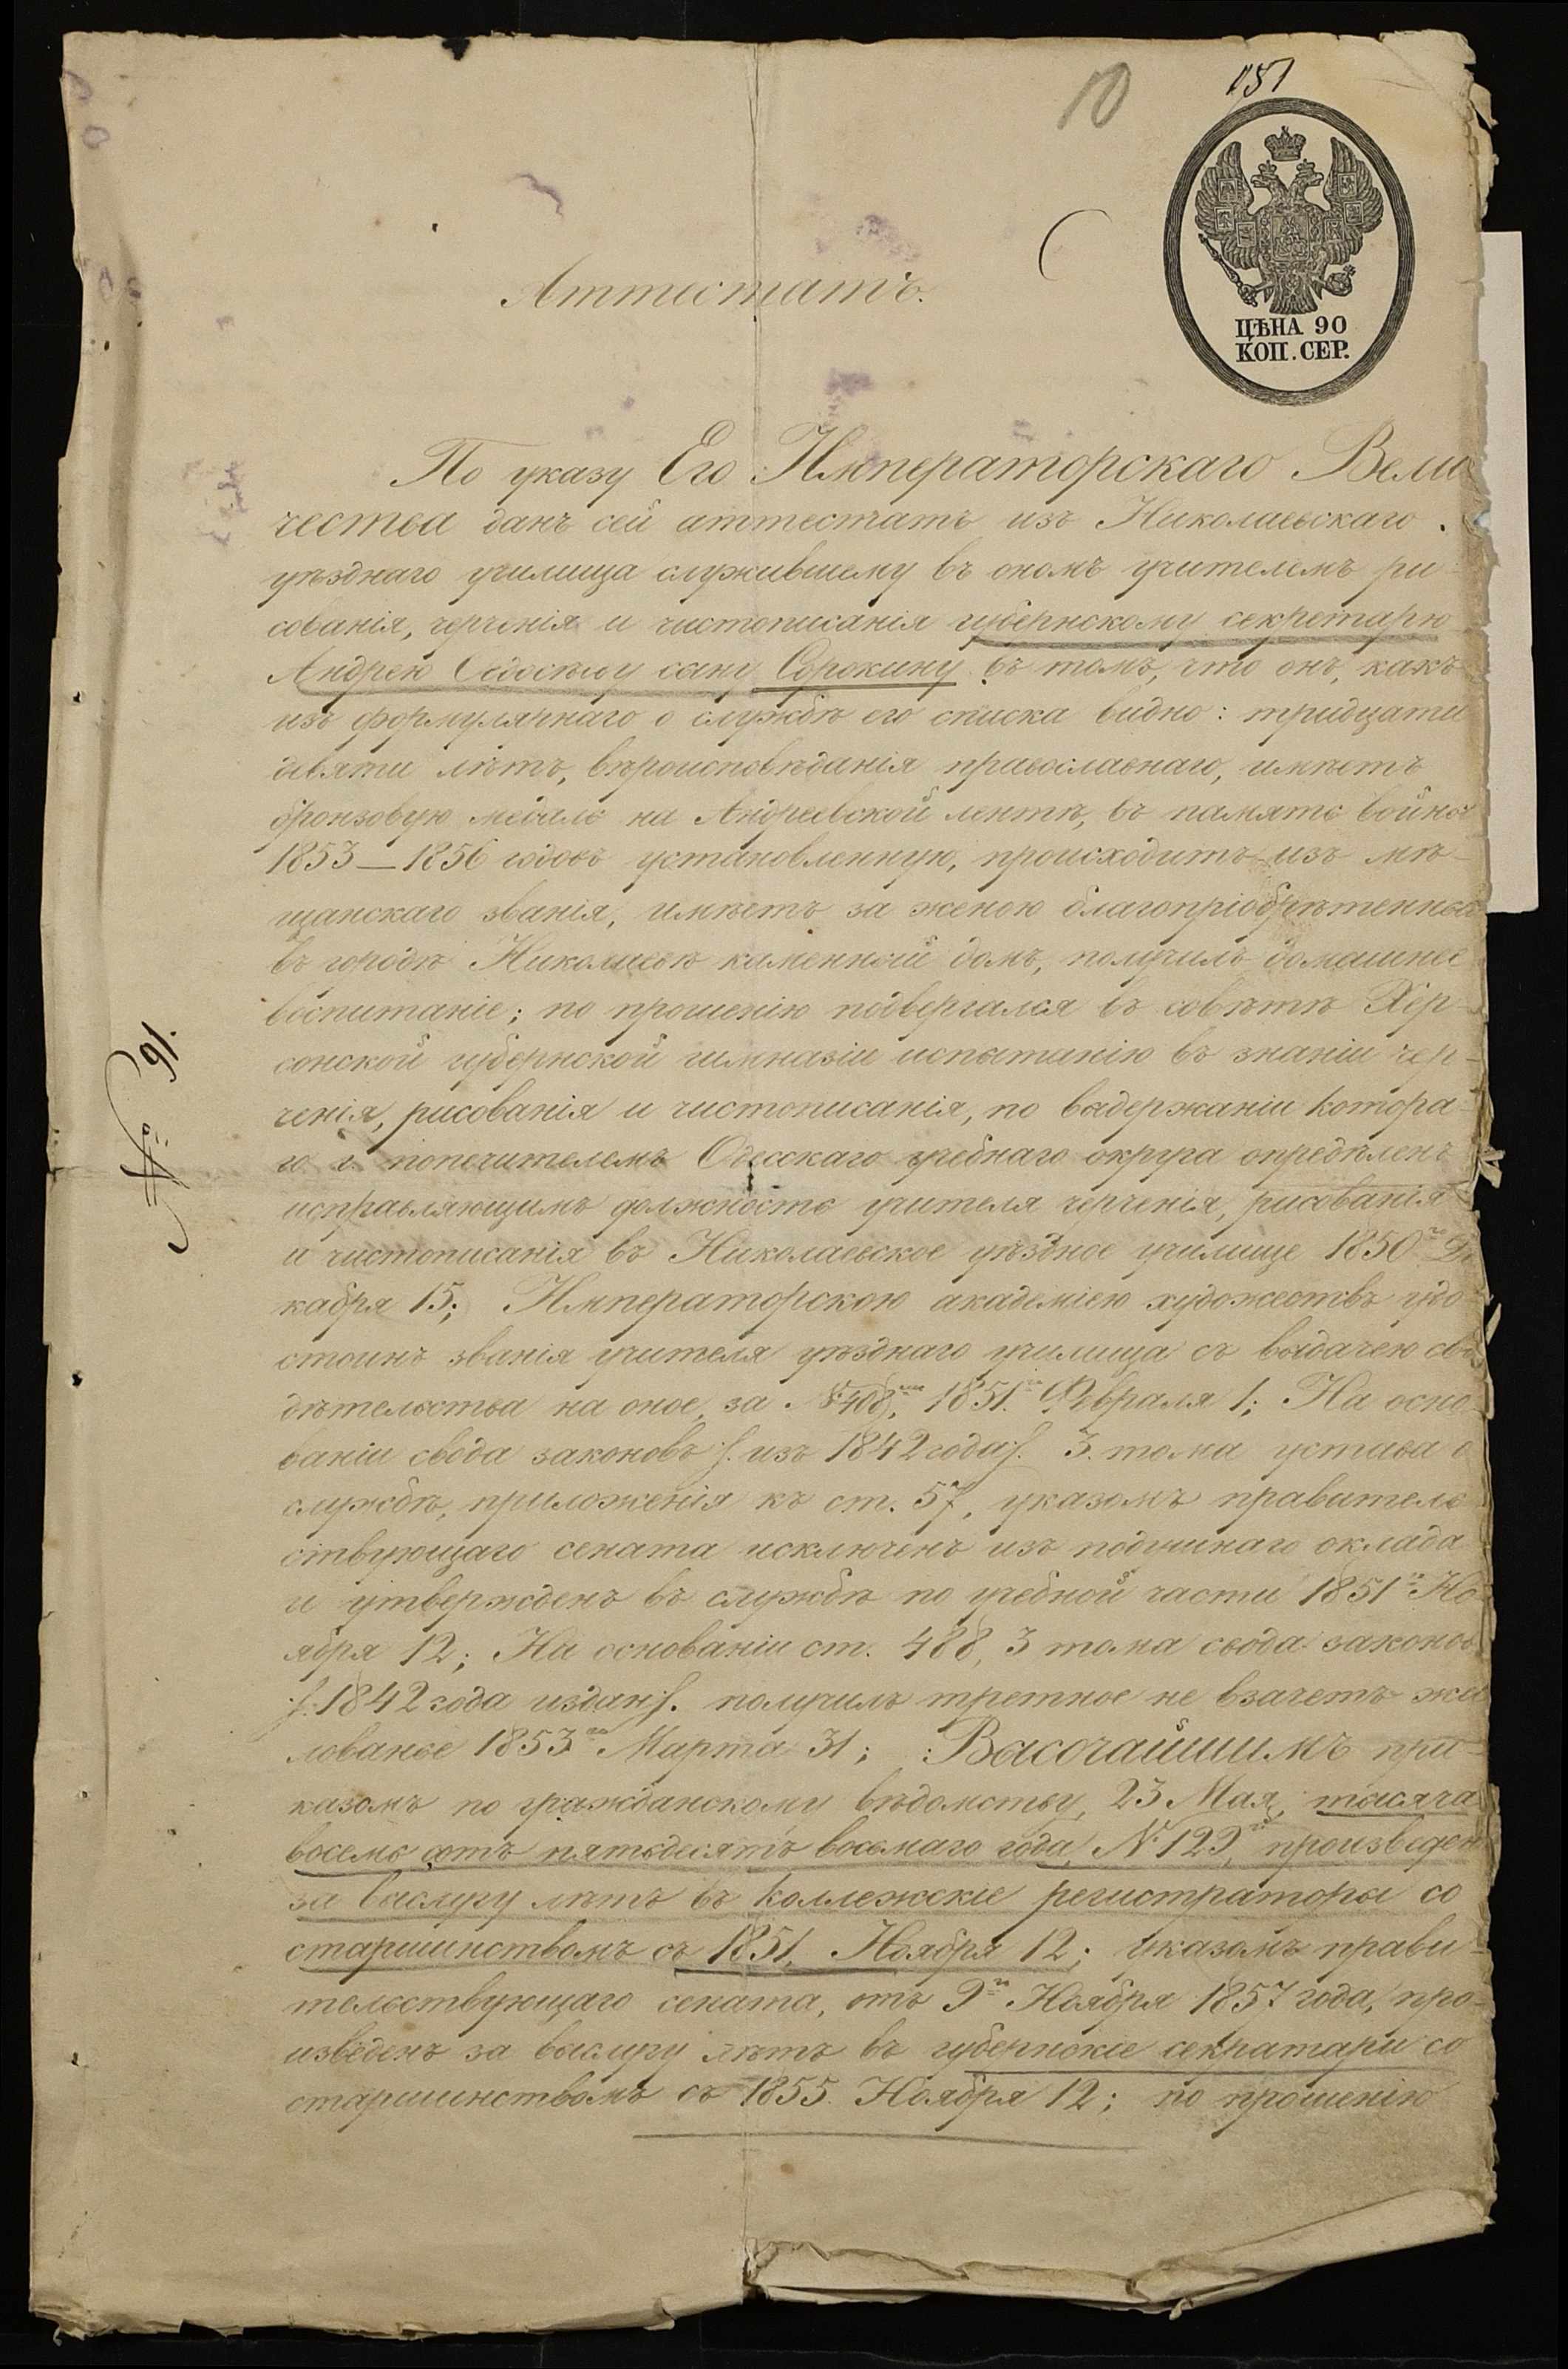 10
151
ЦѢНА 90
КОП. СЕР.
Аттестатъ.
По указу Его Императорскаго Вели
чества данъ сей аттестатъ изъ Николаевскаго
уѣзднаго училища служившему въ ономъ учителемъ ри
сованія, черченія и чистописанія губернскому секретарю
Андрею Сорокину въ томъ, что онъ, какъ
изъ формулярнаго о службѣ его списка видно: тридцати
девяти лѣтъ, вѣроисповѣданія православнаго, имѣетъ
бронзовую медаль на Андреевской лентѣ, въ память войны
1853—1856 годовъ установленную, происходитъ изъ мѣ-
щанскаго званія, имѣетъ за женою благопріобрѣтенный
въ городѣ Николаевѣ каменный домъ, получилъ домашнее
воспитаніе; по прошенію подвергался въ совѣтѣ Хер-
сонской губернской гимназіи испытанію въ знаніи чер-
ченія, рисованія и чистописанія, по выдержаніи котора-
го г. попечителемъ Одесскаго учебнаго округа опредѣленъ
исправляющимъ должность учителя черченія, рисованія
и чистописанія въ Николаевское уѣздное училище 1850го Де
кабря 15; Императорскою академіею художествъ удо-
стоинъ званія учителя уѣзднаго училища съ выдачею сви
дѣтельства на оное, за № 408, 1851го Февраля 1; На осно-
ваніи свода законовъ /: изъ 1842 года :/. 3. тома устава о
службѣ, приложенія къ ст. 57, указомъ правитель
ствующаго сената исключенъ изъ подушнаго оклада
и утвержденъ въ службѣ по учебной части 1851го Но-
ября 12; На основаніи ст. 488, 3 тома свода законовъ
/: 1842 года издан :/. получилъ третное не взачетъ жа
лованье 1853го Марта 31; Высочайшимъ при-
казомъ по гражданскому вѣдомству, 23 Мая, тысяча
восемь сотъ пятьдесятъ восьмаго года, № 129, произведен
за выслугу лѣтъ въ коллежскіе регистраторы со
старшинствомъ съ 1851, Ноября 12; указомъ прави-
тельствующаго сената, отъ 9го Ноября 1857 года, про-
изведенъ за выслугу лѣтъ въ губернскіе секратари со
старшинствомъ съ 1855. Ноября 12; по прошенію
№ 91.